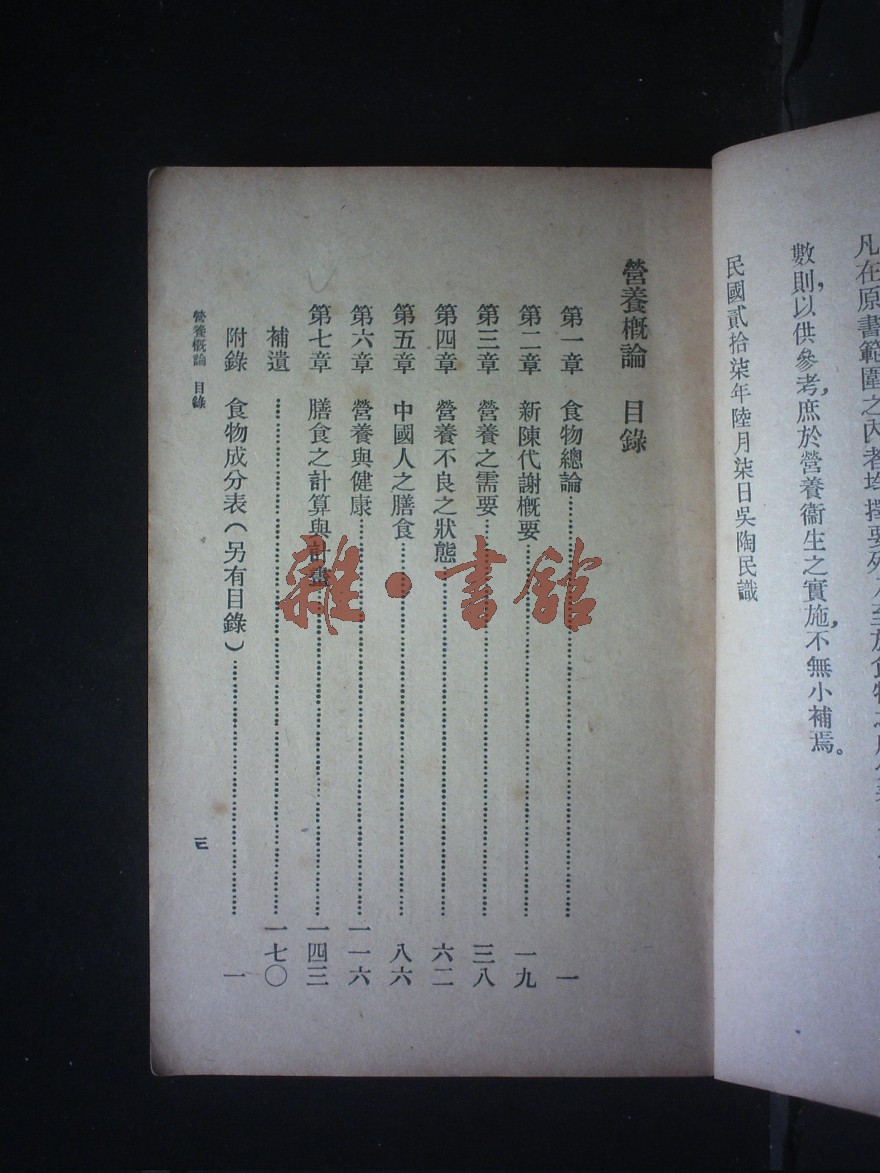 凡在原書範圍之內者均擇要列入至於食物之
數則，以供參考，庶於營養衞生之實施，不無小補焉。
民國貳拾柒年陸月柒日吳陶民識
營養概論 目錄
第一章 食物總論…………一
第二章 新陳代謝概要…………一九
第三章 營養之需要…………三八
第四章 營養不良之狀態…………六二
第五章 中國人之膳食…………八六
第六章 營養與健康…………一一六
第七章 膳食之計算與計畫…………一四三
補遺…………一七〇
附錄 食物成分表（另有目錄）…………一
營養概論 目錄
三
雜·書館